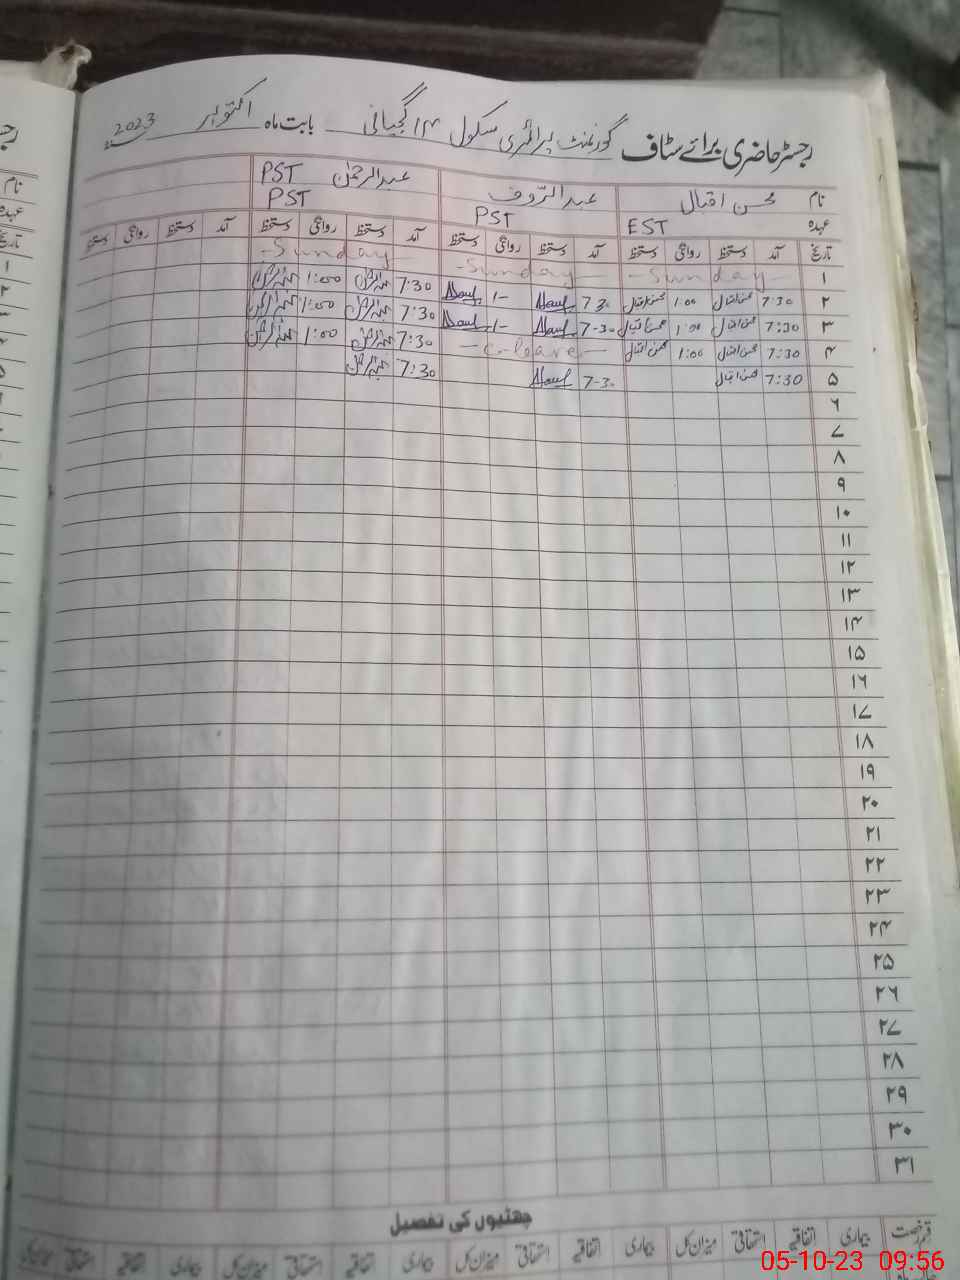 رجسٹر حاضری برائے سٹاف گورنمنٹ پرائمری سکول ۱۴ گجیانی بابت ماہ اکتوبر 2023ء
نام محسن اقبال عبدالرؤف عبدالرحمٰن PST
عہدہ EST PST PST
تاریخ آمد دستخط روانگی دستخط آمد دستخط روانگی دستخط آمد دستخط روانگی دستخط آمد دستخط روانگی دستخط
۱ -Sunday- -Sunday- -Sunday-
۲ 7:30 محسن اقبال 1:00 محسن اقبال 7 30 1- 7:30 1:00
۳ 7:30 محسن اقبال 1:00 محسن اقبال 7-30 1- 7:30 1:00
۴ 7:30 محسن اقبال 1:00 محسن اقبال -c-leave- 7:30 1:00
۵ 7:30 محسن اقبال 7-30 7:30
۶
۷
۸
۹
۱۰
۱۱
۱۲
۱۳
۱۴
۱۵
۱۶
۱۷
۱۸
۱۹
۲۰
۲۱
۲۲
۲۳
۲۴
۲۵
۲۶
۲۷
۲۸
۲۹
۳۰
۳۱
چھٹیوں کی تفصیل
قسم رخصت بیماری اتفاقیہ استحقاقی میزان کل بیماری اتفاقیہ استحقاقی میزان کل بیماری اتفاقیہ استحقاقی میزان کل اتفاقیہ استحقاقی
05-10-23 09:56